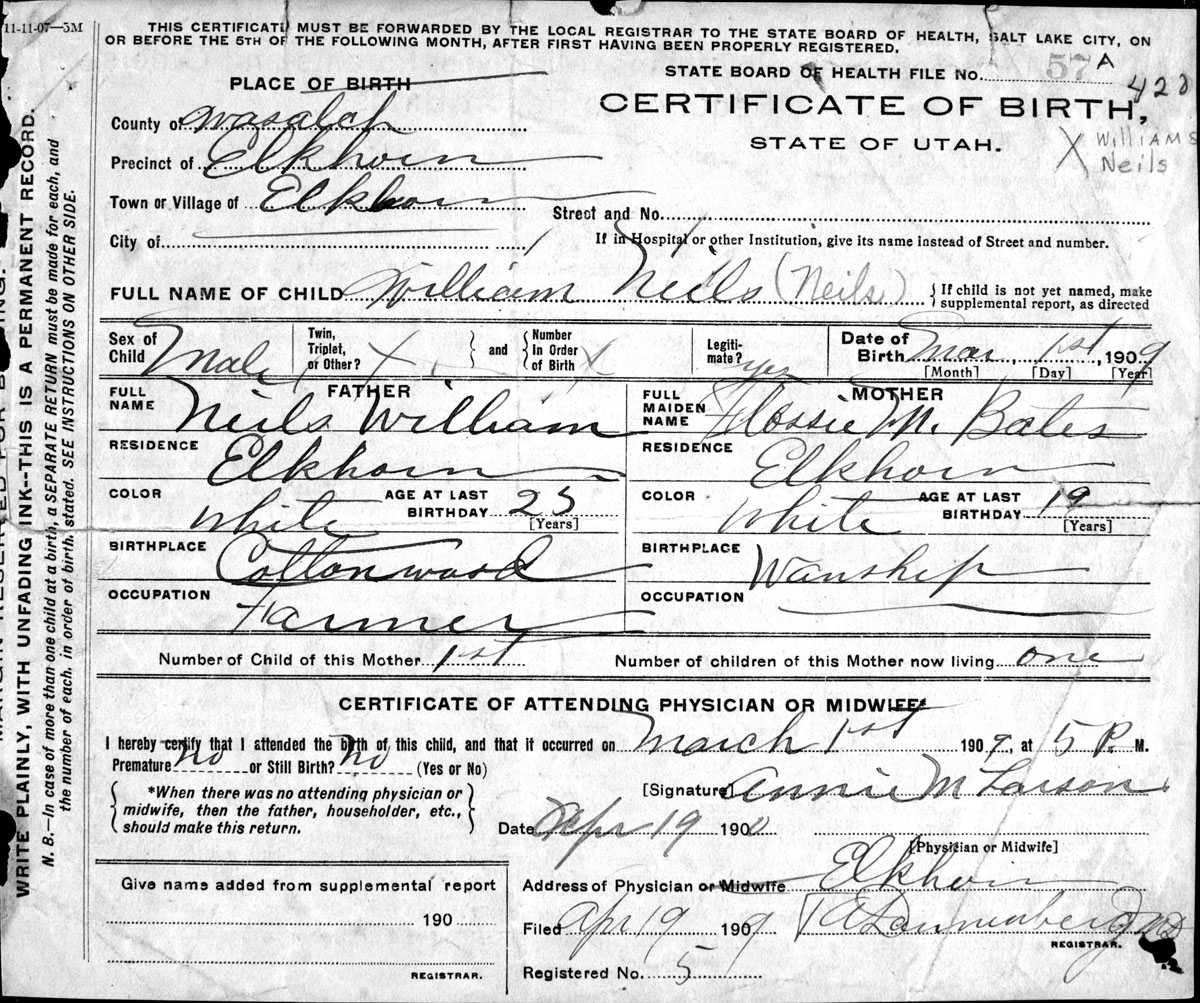 11-11-07—5M
THIS CERTIFICATE MUST BE FORWARDED BY THE LOCAL REGISTRAR TO THE STATE BOARD OF HEALTH, SALT LAKE CITY, ON
OR BEFORE THE 5TH OF THE FOLLOWING MONTH, AFTER FIRST HAVING BEEN PROPERLY REGISTERED.
PLACE OF BIRTH
STATE BOARD OF HEALTH FILE No. 57 A
CERTIFICATE OF BIRTH,
STATE OF UTAH.
X WILLIAMS
Neils
County of Wasatch
Precinct of Elkhorn
Town or Village of Elkhorn
Street and No.
City of
If in Hospital or other Institution, give its name instead of Street and number.
FULL NAME OF CHILD William Neils (Neils) If child is not yet named, make
supplemental report, as directed
Sex of Child Male
Twin, Triplet, or Other? X
and
Number In Order of Birth X
Legitimate? yes
Date of Birth Mar, 1st, 1909
[Month] [Day] [Year]
FATHER
FULL NAME Neils William
RESIDENCE Elkhorn
COLOR White AGE AT LAST BIRTHDAY 25 [Years]
BIRTHPLACE Cottonwood
OCCUPATION Farmer
MOTHER
FULL MAIDEN NAME Flossie M. Bates
RESIDENCE Elkhorn
COLOR White AGE AT LAST BIRTHDAY 19 [Years]
BIRTHPLACE Wanship
OCCUPATION
Number of Child of this Mother 1st Number of children of this Mother now living one
CERTIFICATE OF ATTENDING PHYSICIAN OR MIDWIFE*
I hereby certify that I attended the birth of this child, and that it occurred on March 1st 1909, at 5 P. M.
Premature No or Still Birth? No (Yes or No)
*When there was no attending physician or
midwife, then the father, householder, etc.,
should make this return.
[Signature] Annie M Larson
Date Apr 19 190
[Physician or Midwife]
Address of Physician or Midwife Elkhorn
Filed Apr 19 1909
REGISTRAR.
Registered No. 5
Give name added from supplemental report
190
REGISTRAR.
WRITE PLAINLY, WITH UNFADING INK--THIS IS A PERMANENT RECORD.
N. B.—In case of more than one child at a birth, a SEPARATE RETURN must be made for each, and
the number of each, in order of birth, stated. SEE INSTRUCTIONS ON OTHER SIDE.